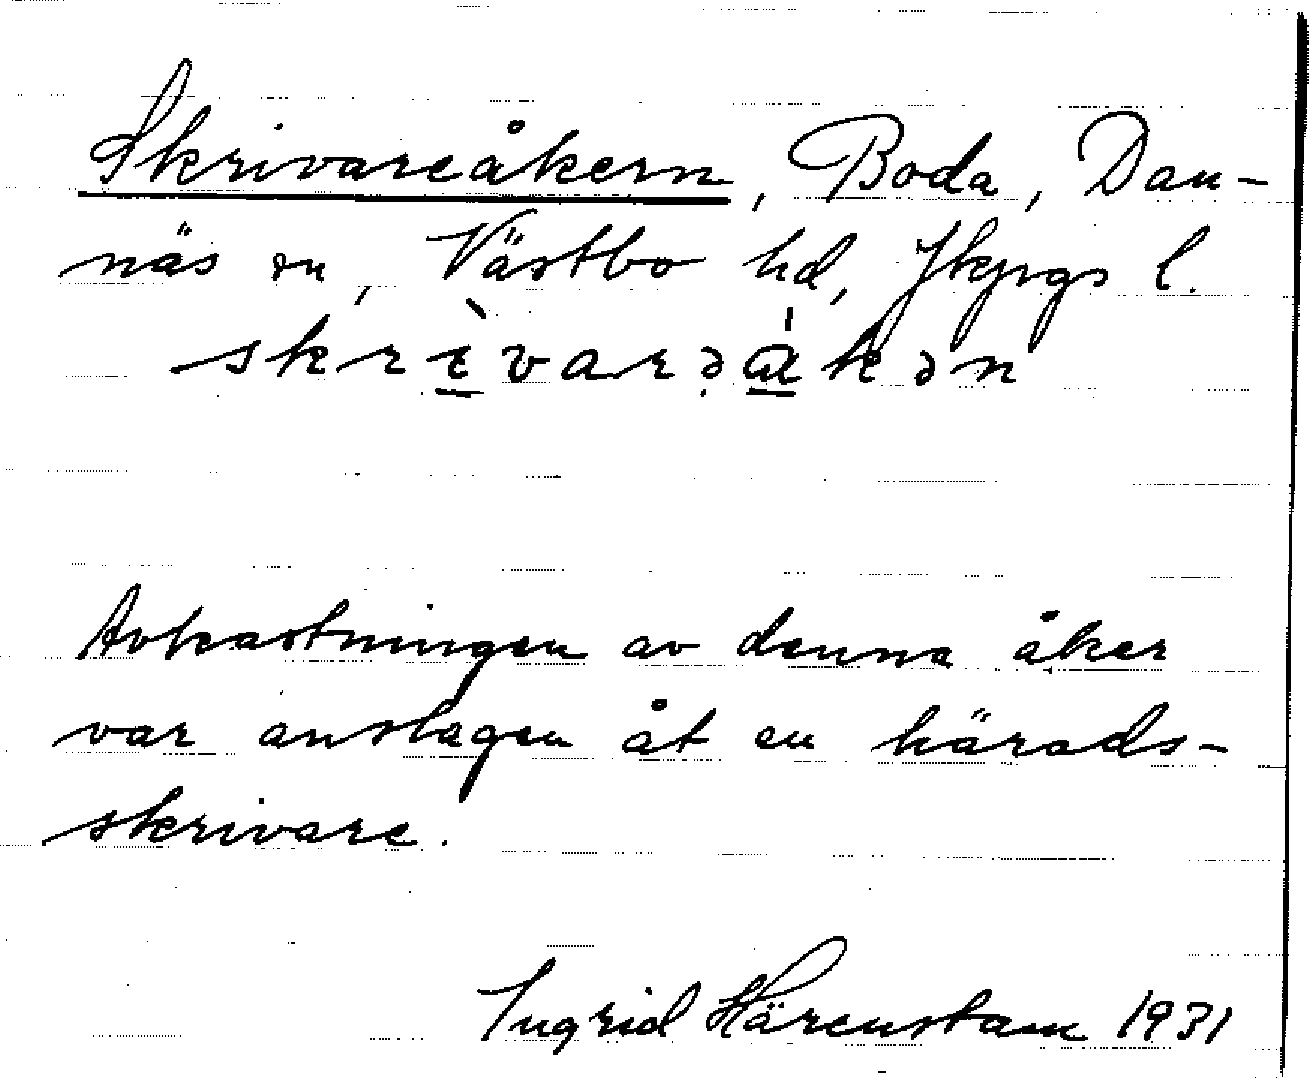 Skrivareåkern, Boda, Dan-
näs sn, Västbo hd, Jkpgs l.
skrìvarəákən
Avkastningen av denna åker
var anslagen åt en härads-
skrivare.
Ingrid Härenstam 1931